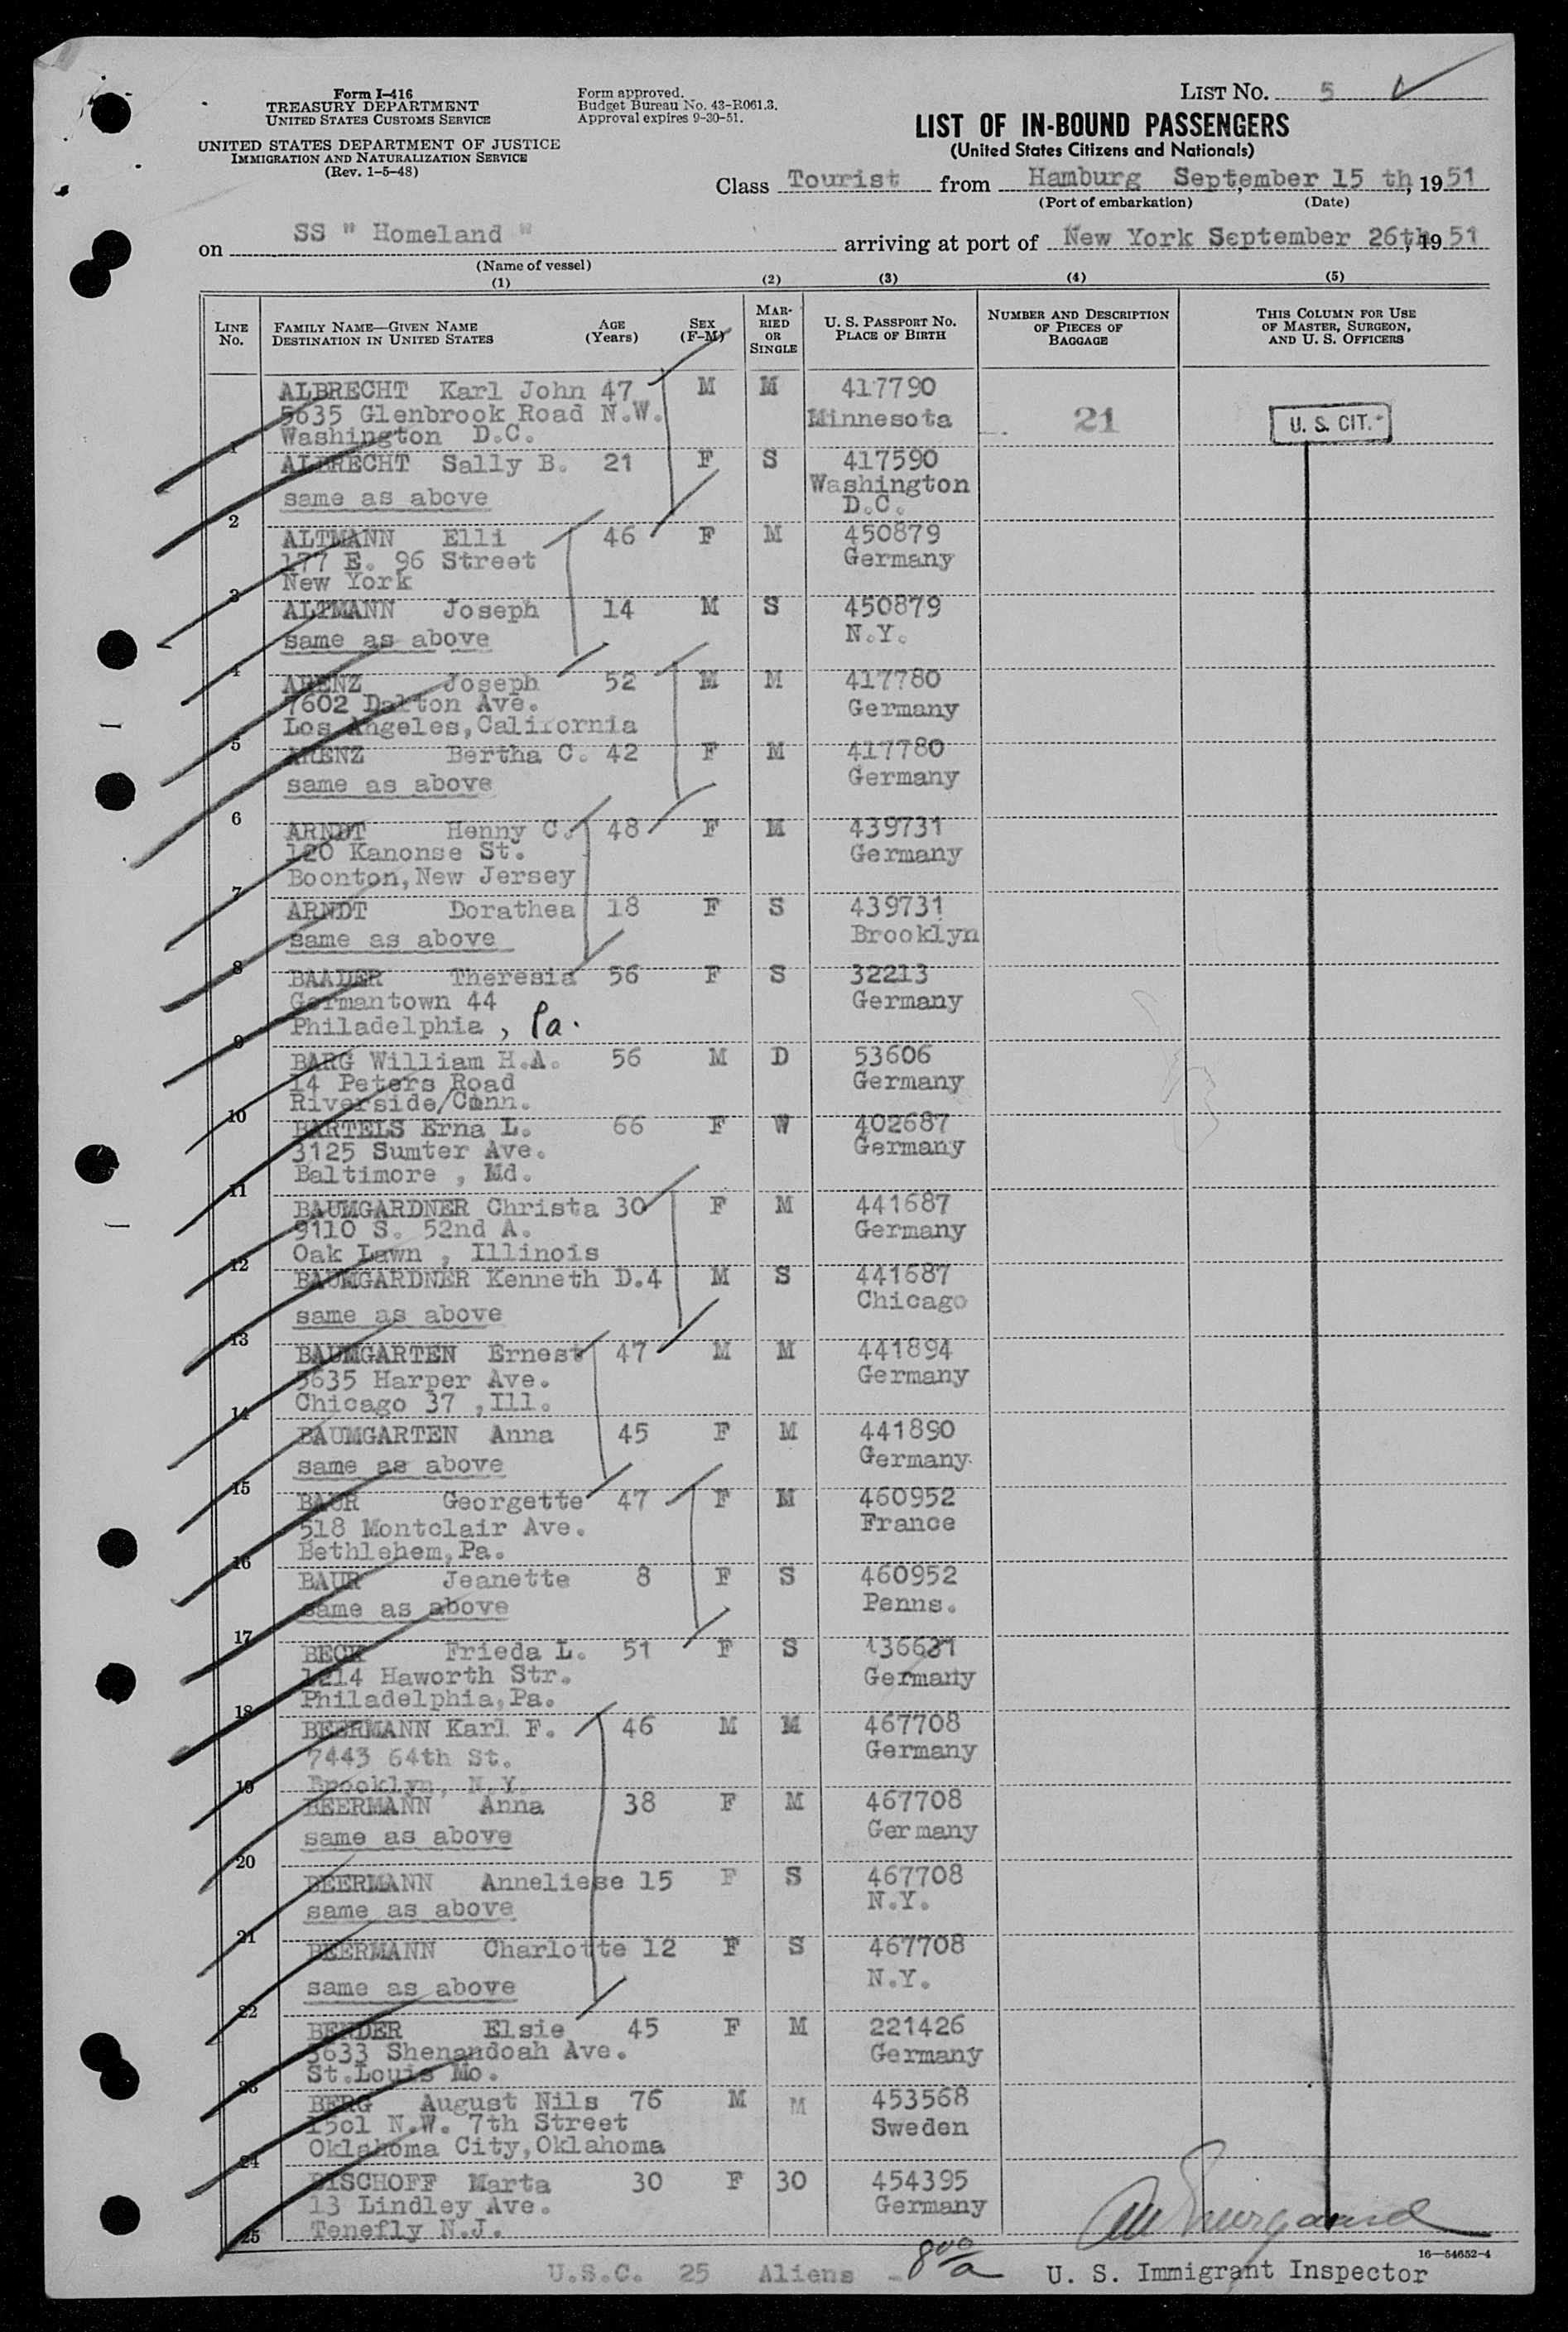 Form I-416
TREASURY DEPARTMENT
UNITED STATES CUSTOMS SERVICE
UNITED STATES DEPARTMENT OF JUSTICE
IMMIGRATION AND NATURALIZATION SERVICE
(Rev. 1-5-48)
Form approved.
Budget Bureau No. 43-R061.3.
Approval expires 9-30-51.
LIST NO. 5
LIST OF IN-BOUND PASSENGERS
(United States Citizens and Nationals)
Class Tourist from Hamburg September 15 th, 1951
(Port of embarkation) (Date)
on SS " Homeland " arriving at port of New York September 26th, 1951
(Name of vessel)
(1) (2) (3) (4) (5)
LINE No. FAMILY NAME—GIVEN NAME DESTINATION IN UNITED STATES AGE (Years) SEX (F-M) MARRIED OR SINGLE U. S. PASSPORT NO. PLACE OF BIRTH NUMBER AND DESCRIPTION OF PIECES OF BAGGAGE THIS COLUMN FOR USE OF MASTER, SURGEON, AND U. S. OFFICERS
ALBRECHT Karl John 47 M M 417790
5635 Glenbrook Road N.W. Minnesota 21 U. S. CIT.
1 Washington D.C.
ALBRECHT Sally B. 21 F S 417590
same as above Washington
2 D.C.
ALTMANN Elli 46 F M 450879
177 E. 96 Street Germany
3 New York
ALTMANN Joseph 14 M S 450879
same as above N.Y.
4
ARENZ Joseph 52 M M 417780
7602 Dalton Ave. Germany
5 Los Angeles, California
ARENZ Bertha C. 42 F M 417780
same as above Germany
6
ARNDT Henny C. 48 F M 439731
120 Kanonse St. Germany
7 Boonton, New Jersey
ARNDT Dorathea 18 F S 439731
same as above Brooklyn
8
BAADER Theresia 56 F S 32213
Germantown 44 Germany
9 Philadelphia , Pa.
BARG William H.A. 56 M D 53606
14 Peters Road Germany
10 Riverside/Conn.
BARTELS Erna L. 66 F W 402687
3125 Sumter Ave. Germany
11 Baltimore , Md.
BAUMGARDNER Christa 30 F M 441687
9110 S. 52nd A. Germany
12 Oak Lawn , Illinois
BAUMGARDNER Kenneth D.4 M S 441687
same as above Chicago
13
BAUMGARTEN Ernest 47 M M 441894
5635 Harper Ave. Germany
14 Chicago 37 ,Ill.
BAUMGARTEN Anna 45 F M 441890
same as above Germany
15
BAUR Georgette 47 F M 460952
518 Montclair Ave. France
16 Bethlehem, Pa.
BAUR Jeanette 8 F S 460952
same as above Penns.
17
BECK Frieda L. 51 F S
1214 Haworth Str. Germany
18 Philadelphia, Pa.
BEERMANN Karl F. 46 M M 467708
7443 64th St. Germany
19 Brooklyn, N.Y.
BEERMANN Anna 38 F M 467708
same as above Germany
20
BEERMANN Anneliese 15 F S 467708
same as above N.Y.
21
BEERMANN Charlotte 12 F S 467708
same as above N.Y.
22
BENDER Elsie 45 F M 221426
3633 Shenandoah Ave. Germany
23 St.Louis Mo.
BERG August Nils 76 M M 453568
15ol N.W. 7th Street Sweden
24 Oklahoma City, Oklahoma
BISCHOFF Marta 30 F 30 454395
13 Lindley Ave. Germany
25 Tenefly N.J.
16—54652-4
U.S.C. 25 Aliens - U. S. Immigrant Inspector